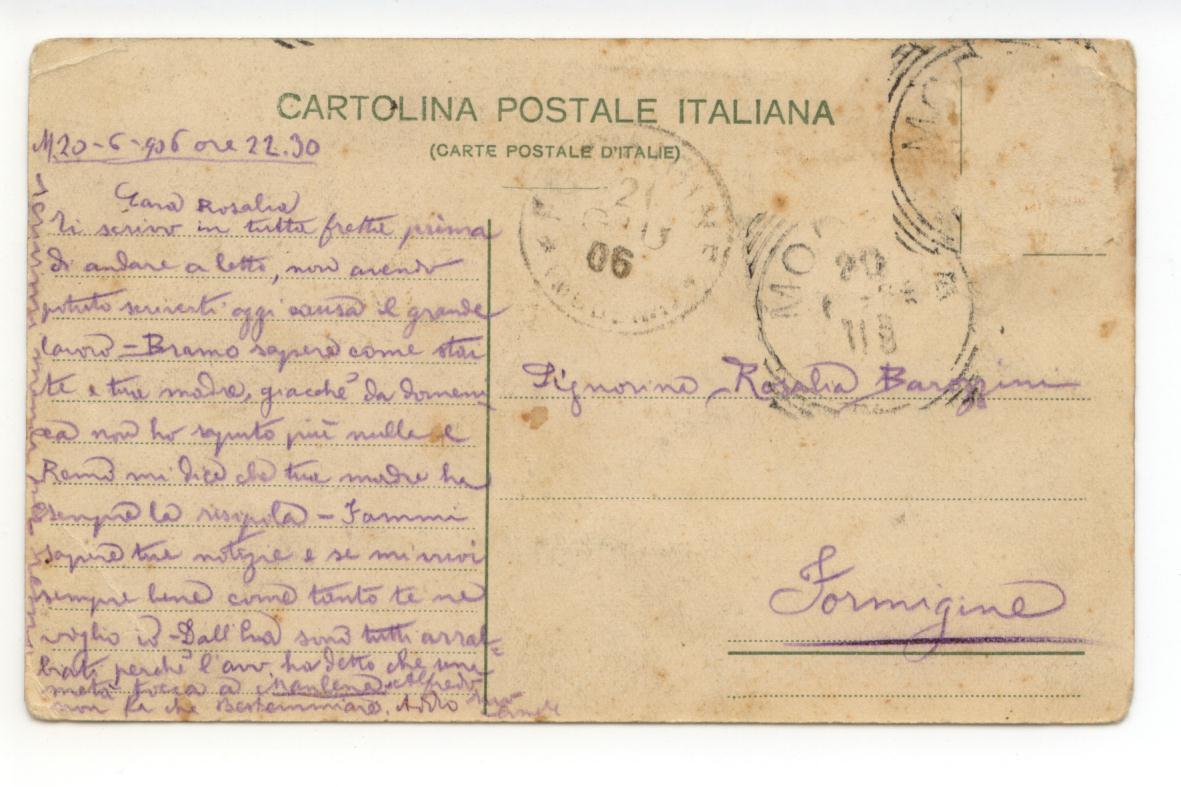 CARTOLINA POSTALE ITALIANA
(CARTE POSTALE D'ITALIE)
M 20-6-906 ore 22.30
Cara Rosalia
Ti scrivo in tutta fretta prima
di andare a letto, non avendo
potuto scriverti oggi causa il grande
lavoro - Bramo sapere come stai
te e tua madre, giacchè da domeni
ca non ho saputo più nulla e
Remo mi dice che tua madre ha
sempre la risipola - Fammi
sapere tue notizie e se mi vuoi
sempre bene come tanto te ne
voglio io - Dall' sono tutti arrab=
biati perchè l'avv. ha detto che una
metà tocca a e Alfredo
non fa che bestemmiare. Addio
21
06
MO
MO
20
11 8
Signorina Rosalia Barozzini
Formigine